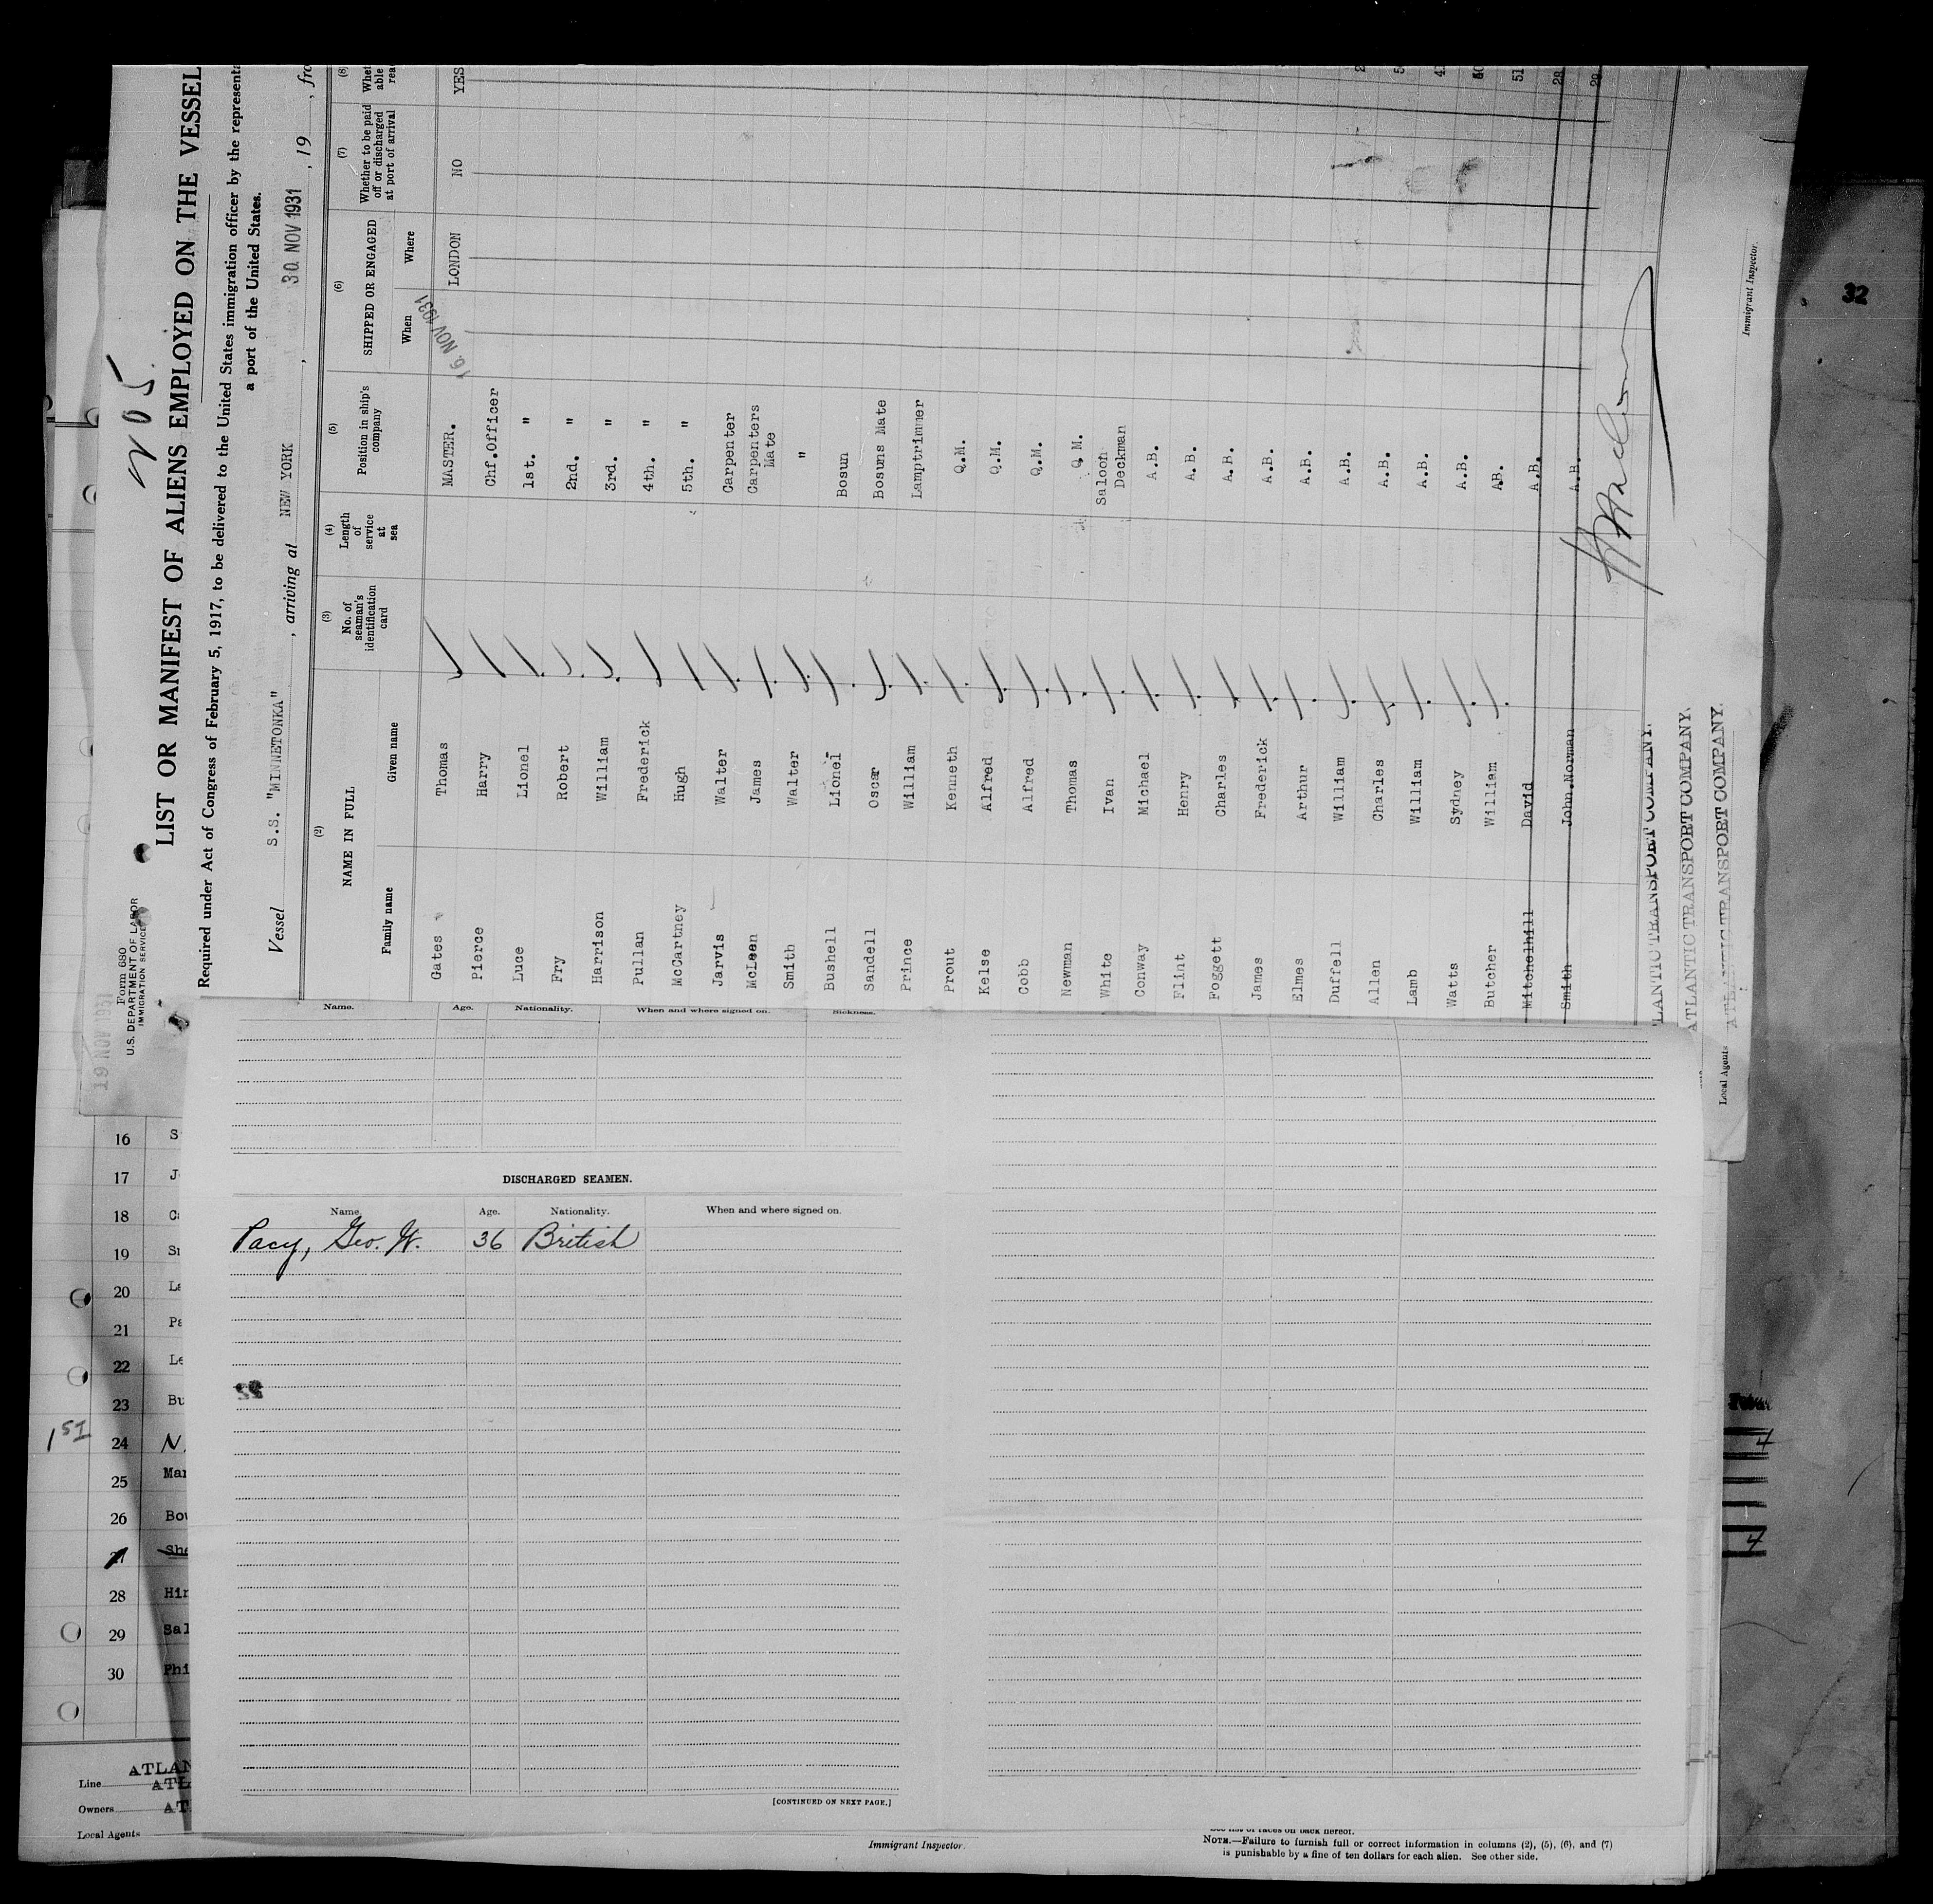 No 5.
LIST OR MANIFEST OF ALIENS EMPLOYED ON THE VESSEL
Required under Act of Congress of February 5, 1917, to be delivered to the United States immigration officer by the
a port of the United States.
Form 680
U.S. DEPARTMENT OF LABOR
IMMIGRATION SERVICE
19 NOV 1931
Vessel S.S. "MINNETONKA", arriving at NEW YORK, 30 NOV 1931, 19
(2) (3) (4) (5) (6) (7) (8)
NAME IN FULL
Family name Given name
No. of seaman's identification card
Length of service at sea
Position in ship's company
SHIPPED OR ENGAGED
When Where
Whether to be paid off or discharged at port of arrival
Gates Thomas MASTER. 16 NOV 1931 LONDON NO YES
Pierce Harry Chf.Officer
Luce Lionel 1st. "
Fry Robert 2nd. "
Harrison William 3rd. "
Pullan Frederick 4th. "
McCartney Hugh 5th. "
Jarvis Walter Carpenter
McLeen James Carpenters Mate
Smith Walter "
Bushell Lionel Bosun
Sandell Oscar Bosuns Mate
Prince William Lamptrimmer
Prout Kenneth Q.M.
Kelse Alfred Q.M.
Cobb Alfred Q.M.
Newman Thomas Q M.
White Ivan Saloon Deckman
Conway Michael A.B.
Flint Henry A.B.
Foggett Charles A.B.
James Frederick A.B.
Elmes Arthur A.B.
Duffell William A.B.
Allen Charles A.B.
Lamb William A.B.
Watts Sydney A.B.
Butcher William AB.
Mitchelhill David A.B.
Smith John.Norman A.B.
ATLANTIC TRANSPORT COMPANY.
ATLANTIC TRANSPORT COMPANY.
Local Agents ATLANTIC TRANSPORT COMPANY.
Immigrant Inspector.
32
Name. Age. Nationality. When and where signed on. Sickness.
DISCHARGED SEAMEN.
Name. Age. Nationality. When and where signed on.
Pacy, Geo. W. 36 British
[CONTINUED ON NEXT PAGE.]
16
17
18
19
20
21
22
23
1st 24
25 Mar
26
28
29 Sal
30 Phi
Line
Owners
Local Agents
Immigrant Inspector.
See list of races on back hereof.
NOTE.—Failure to furnish full or correct information in columns (2), (5), (6), and (7)
is punishable by a fine of ten dollars for each alien. See other side.
4
4